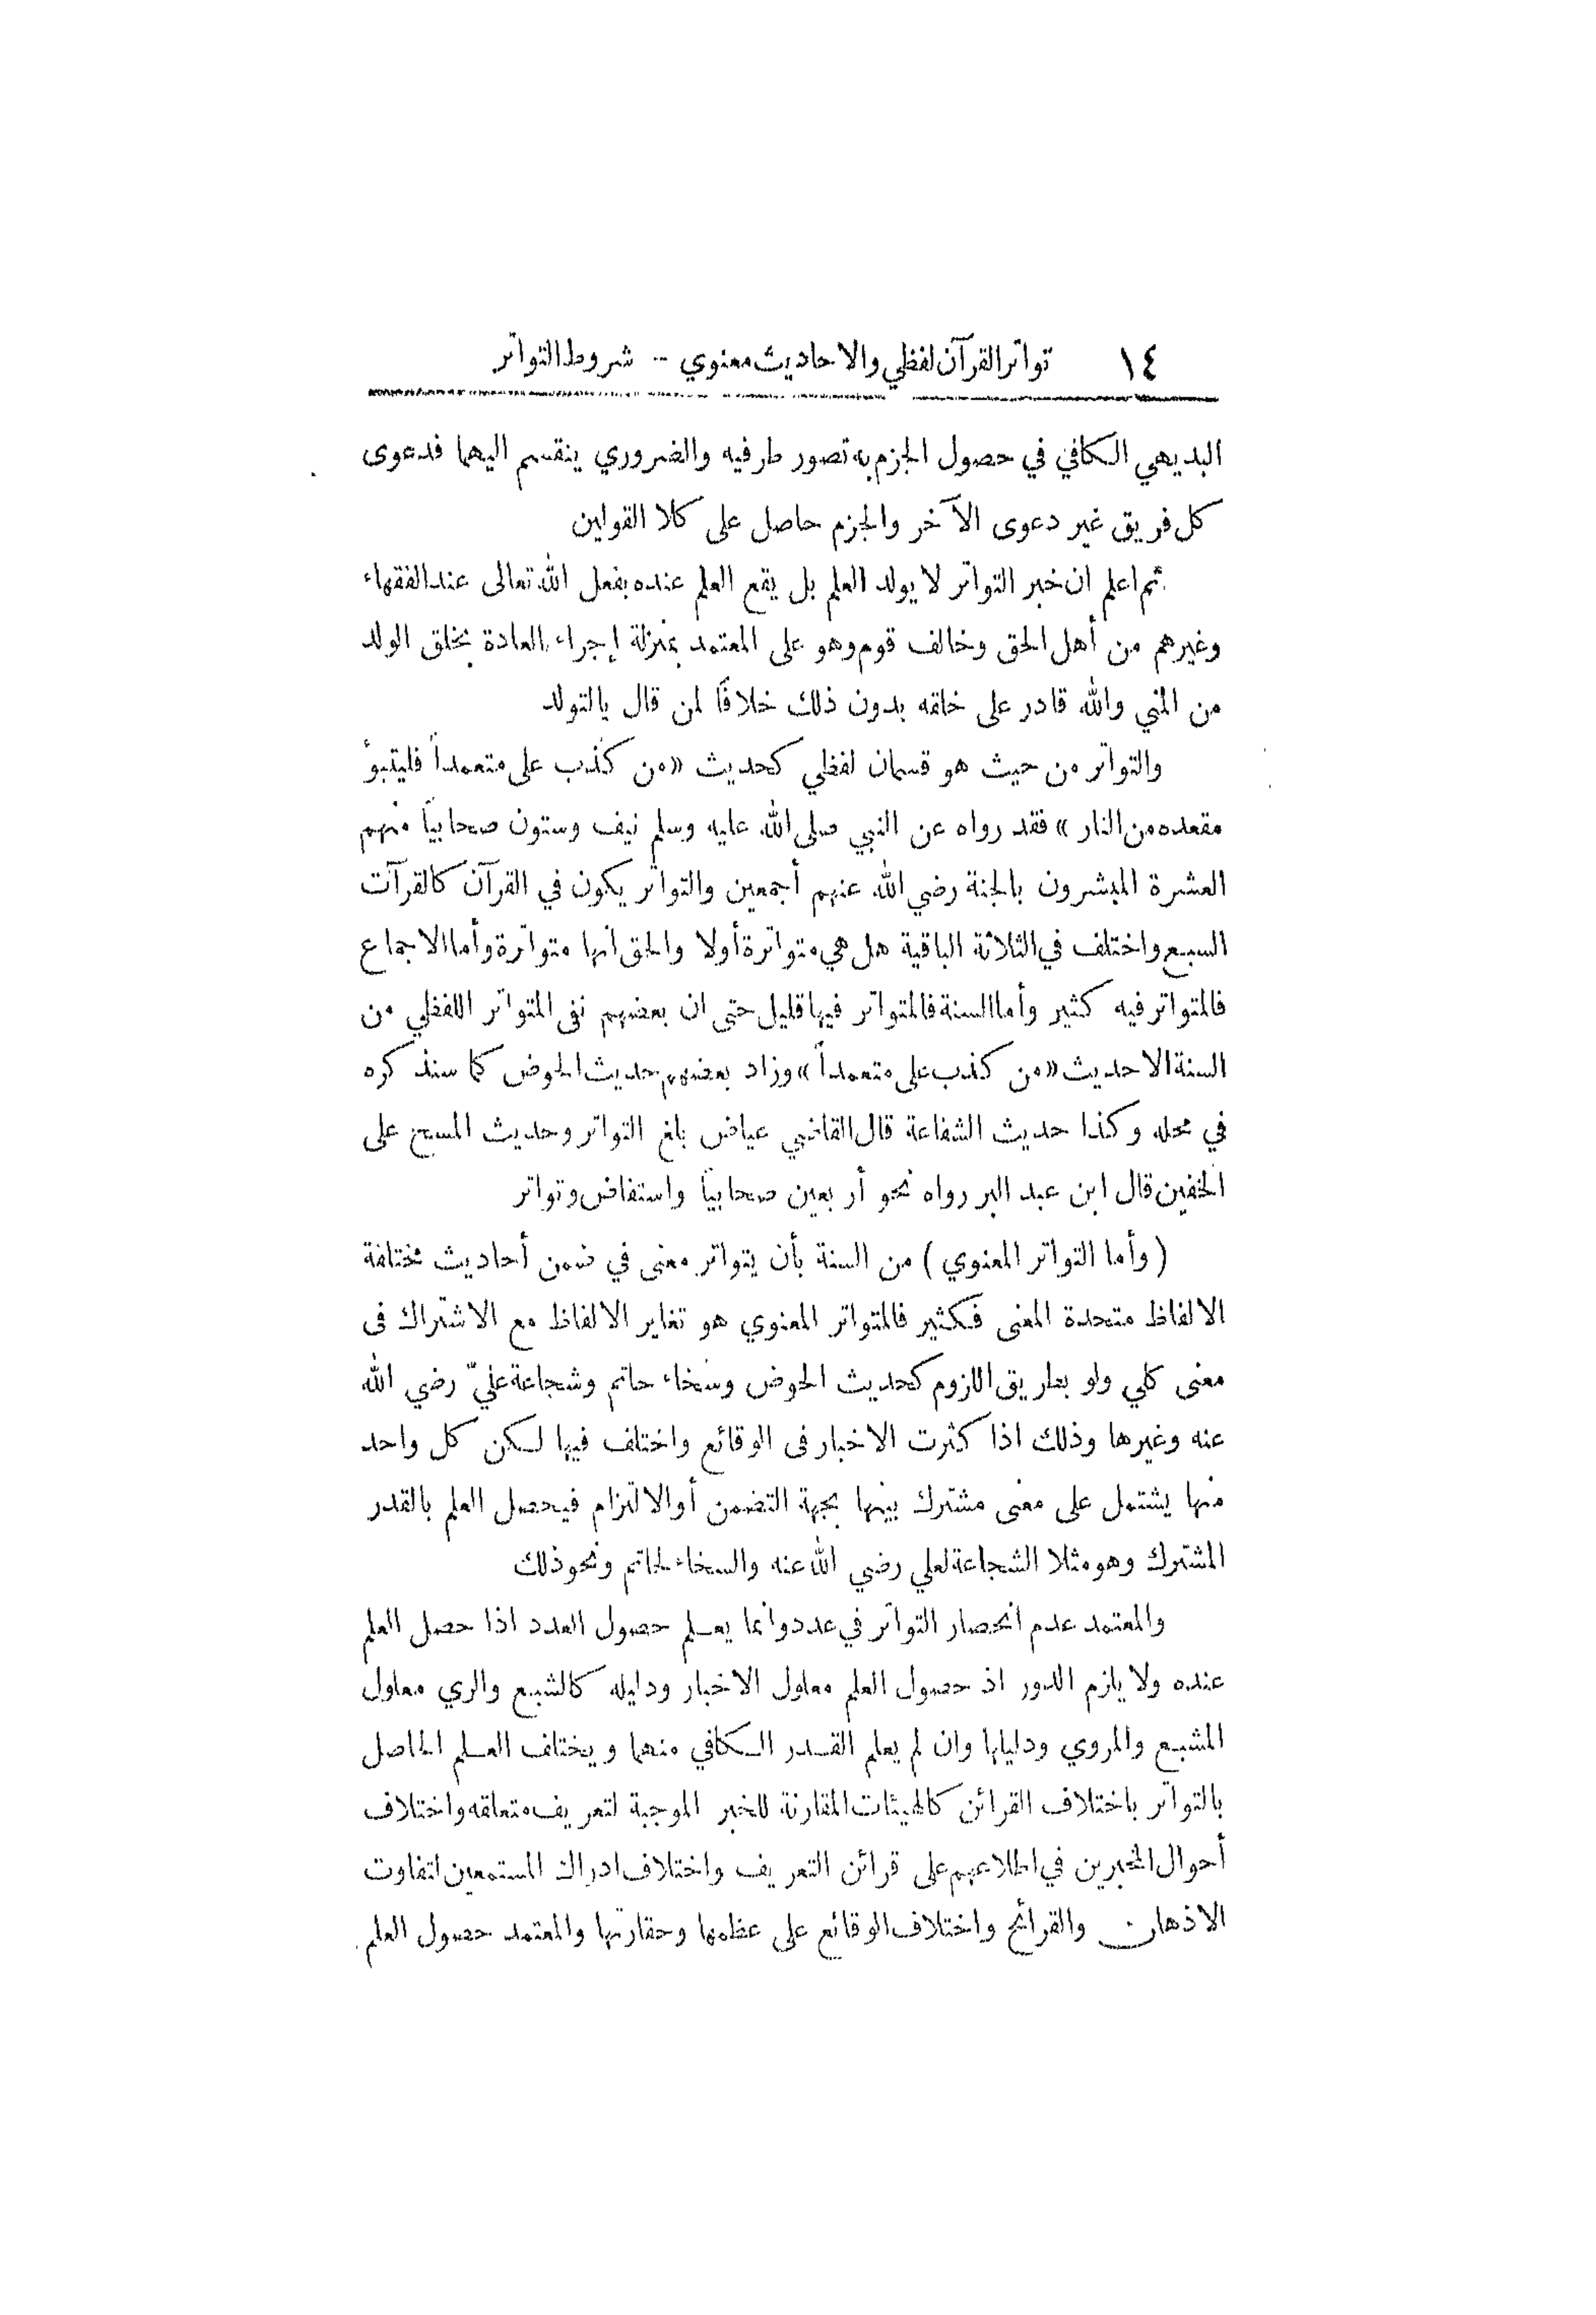 ١٤ تواتر القرآن لفظي والاحاديث معنوي -- شروط التواتر
البديهي الكافي في حصول الجزم به تصور طرفيه والضروري ينقسم اليهما فدعوى
كل فريق غير دعوى الآخر والجزم حاصل على كلا القولين
ثم اعلم ان خبر التواتر لا يولد العلم بل يقع العلم عنده بفعل الله تعالى عند الفقهاء
وغيرهم من أهل الحق وخالف قوم وهو على المعتمد بمنزلة إجراء العادة بخلق الولد
من المني والله قادر على خلقه بدون ذلك خلافًا لمن قال بالتولد
والتواتر من حيث هو قسمان لفظي كحديث «من كذب على متعمداً فليتبوأ
مقعده من النار» فقد رواه عن النبي صلى الله عليه وسلم نيف وستون صحابيًا منهم
العشرة المبشرون بالجنة رضي الله عنهم أجمعين والتواتر يكون في القرآن كالقرآت
السبع واختلف في الثلاثة الباقية هل هي متواترة أولا والحق انها متواترة وأما الاجماع
فالمتواتر فيه كثير وأما السنة فالمتواتر فيها قليل حتى ان بعضهم نفى المتواتر اللفظي من
السنة الا حديث «من كذب على متعمداً» وزاد بعضهم حديث الحوض كما سنذكره
في محله وكذا حديث الشفاعة قال القاضي عياض بلغ التواتر وحديث المسح على
الخفين قال ابن عبد البر رواه نحو أربعين صحابيًا واستفاض وتواتر
(وأما التواتر المعنوي) من السنة بأن يتواتر معنى في ضمن أحاديث مختلفة
الالفاظ متحدة المعنى فكثير فالمتواتر المعنوي هو تغاير الالفاظ مع الاشتراك فى
معنى كلي ولو بطريق اللزوم كحديث الحوض وسخاء حاتم وشجاعة عليّ رضي الله
عنه وغيرها وذلك اذا كثرت الاخبار فى الوقائع واختلف فيها لكن كل واحد
منها يشتمل على معنى مشترك بينها بجهة التضمن أو الالتزام فيحصل العلم بالقدر
المشترك وهو مثلا الشجاعة لعلي رضي الله عنه والسخاء لحاتم ونحو ذلك
والمعتمد عدم انحصار التواتر في عدد وانما يعلم حصول العدد اذا حصل العلم
عنده ولا يلزم الدور اذ حصول العلم معلول الاخبار ودليله كالشبع والري معلول
المشبع والمروي ودليلها وان لم يعلم القدر الكافي منهما ويختلف العلم الحاصل
بالتواتر باختلاف القرائن كالهيئات المقارنة للخبر الموجبة لتعريف متعلقه واختلاف
أحوال المخبرين في اطلاعهم على قرائن التعريف واختلاف ادراك المستمعين لتفاوت
الاذهان والقرائح واختلاف الوقائع على عظمها وحقارتها والمعتمد حصول العلم